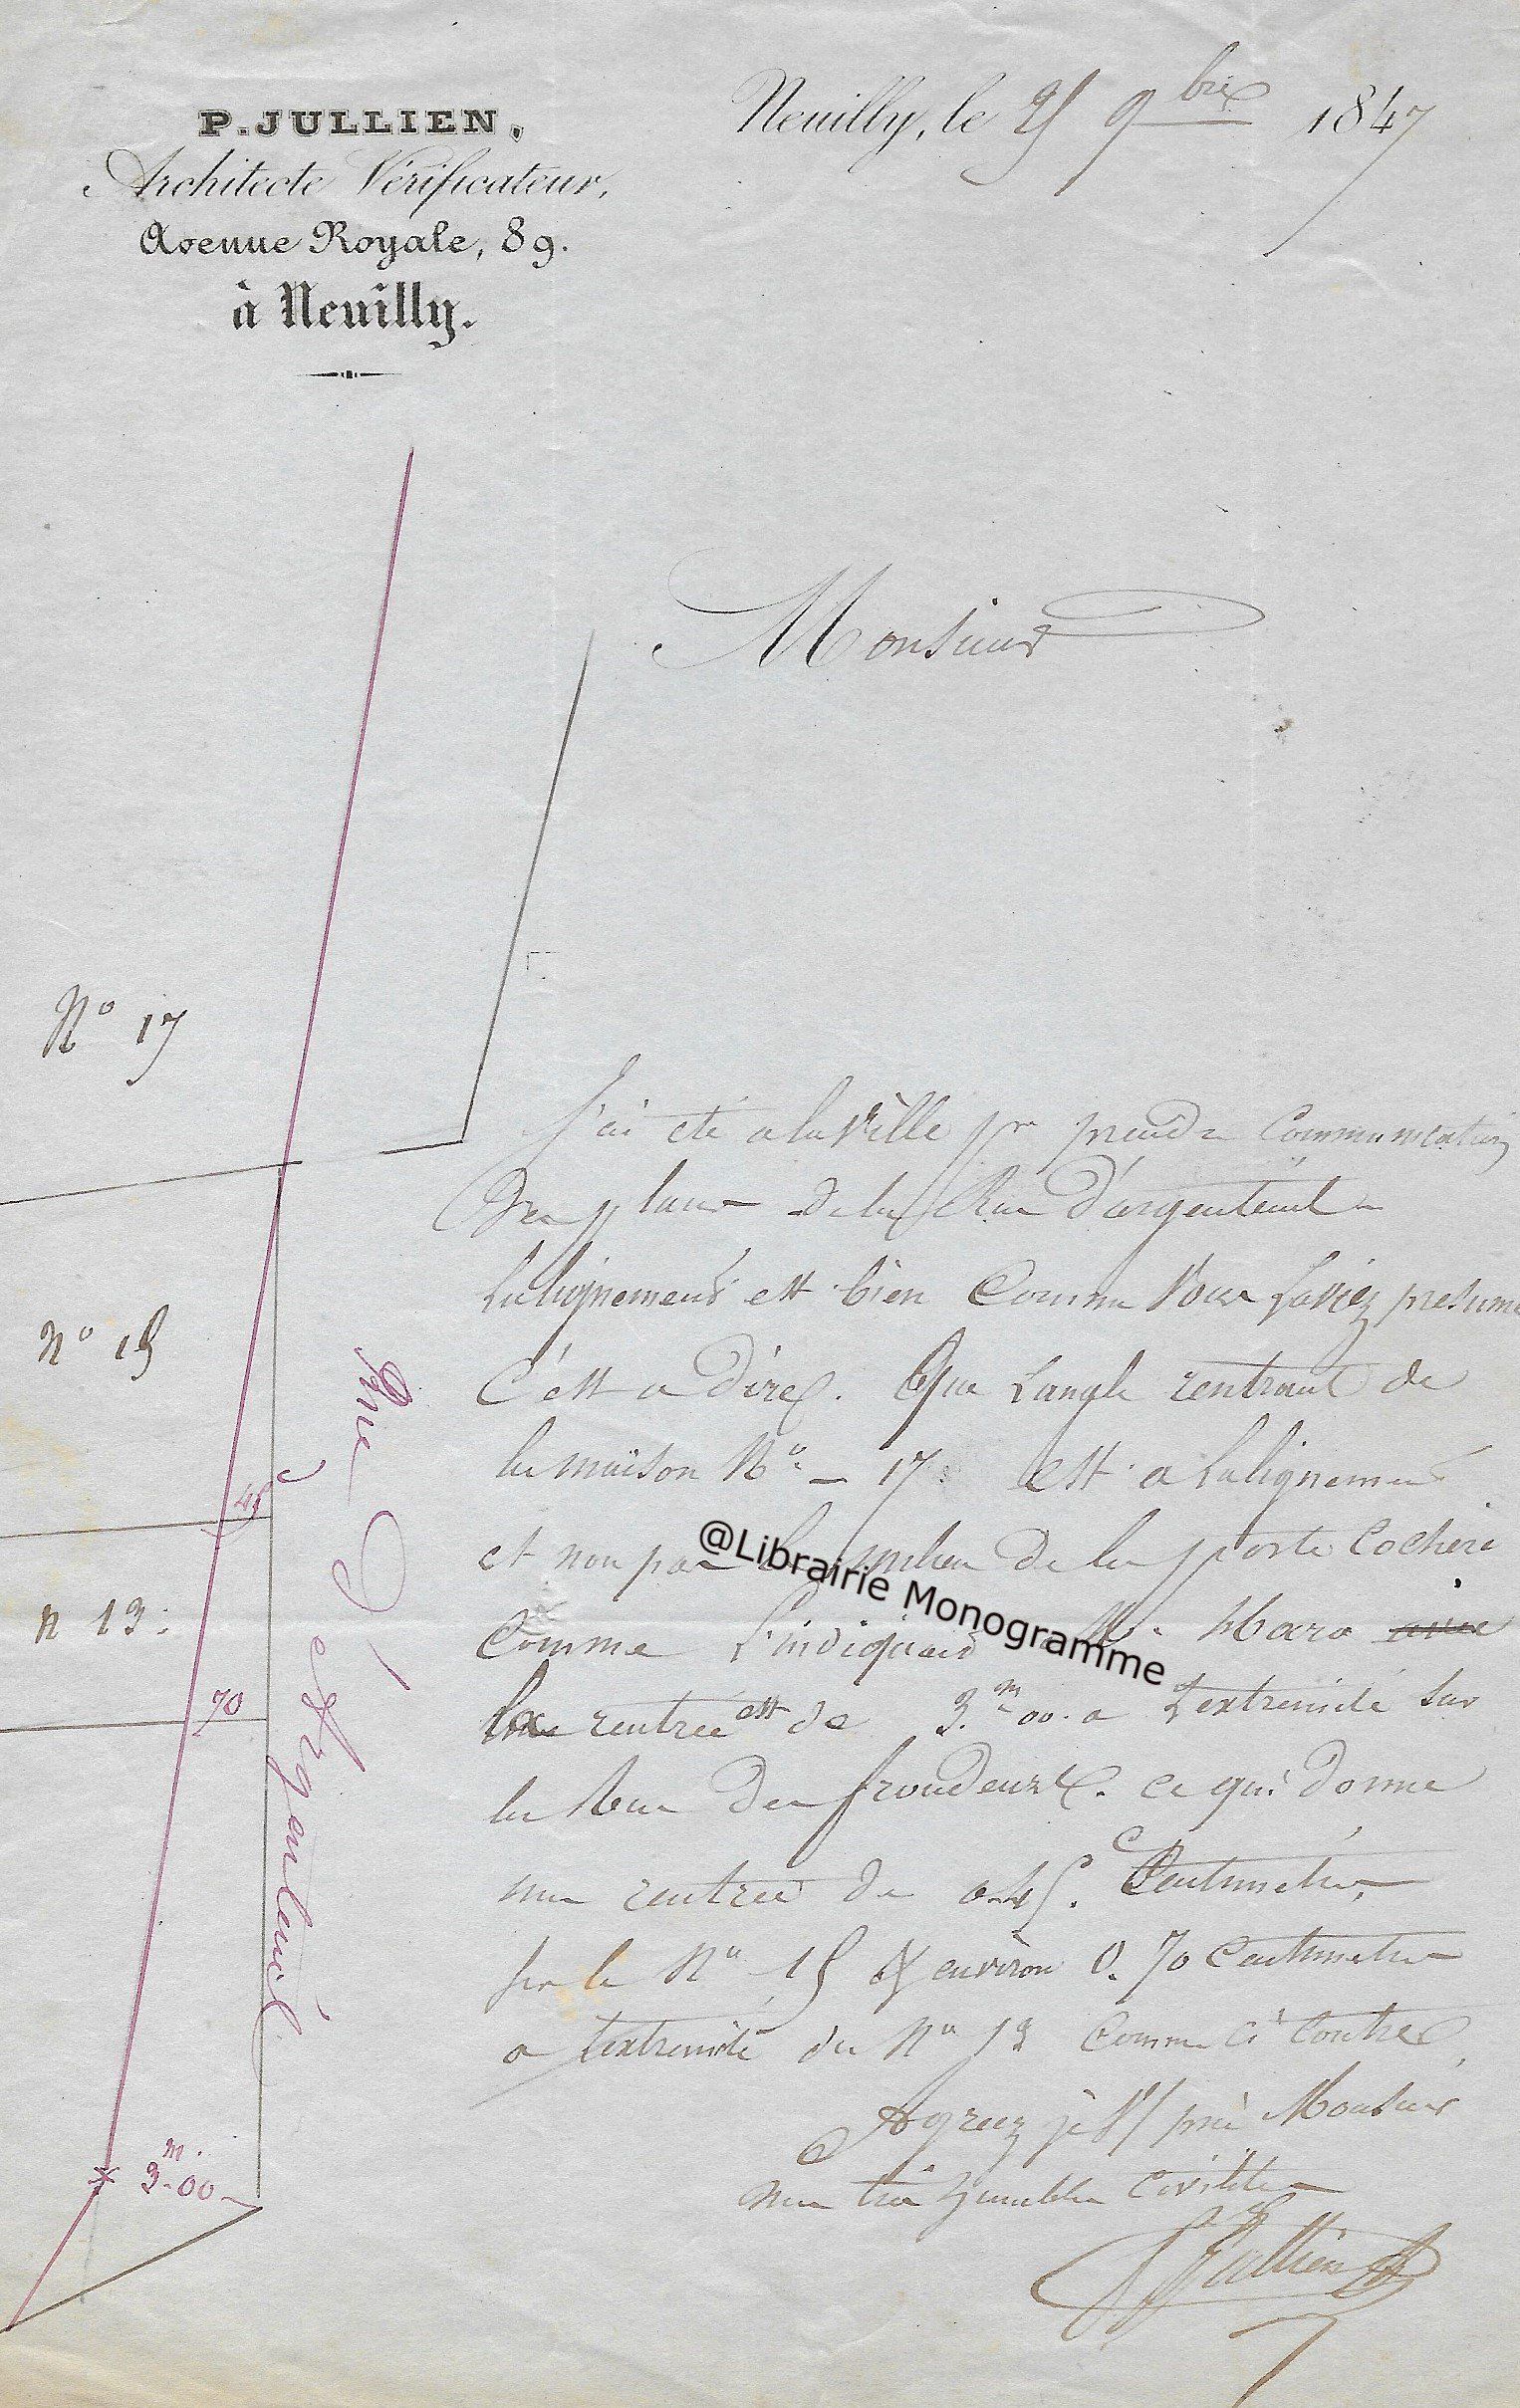 P. JULLIEN,
Architecte Vérificateur,
Avenue Royale, 89.
à Neuilly.
Neuilly, le 25 9bre 1847
Monsieur
J'ai eté a la Ville pr prendre Communication
Des plans de la Rue D'argenteuil
Lalignement est bien Comme Vous Laviez présumé
C'est a Dire. Que Langle rentrant de
la maison No - 17 est a Lalignement
et non pas le milieu de la porte Cochere
Comme l'indiquait Mr. Haro
La rentrée est de 3.m00. a Lextremité sur
la Rue Des frondeurs. ce qui Donne
une rentrée de 0.45. Centimetres
sur le No 15 & environ 0.70 Centimetres
a Lextremité du No 13 Comme Ci Contre
Agreez je V/ prie Monsieur
mes très humbles Civilités
Jullien
No 17
No 15
n 13:
45
70
3m.00
Rue D'Argenteuil
@Librairie Monogramme